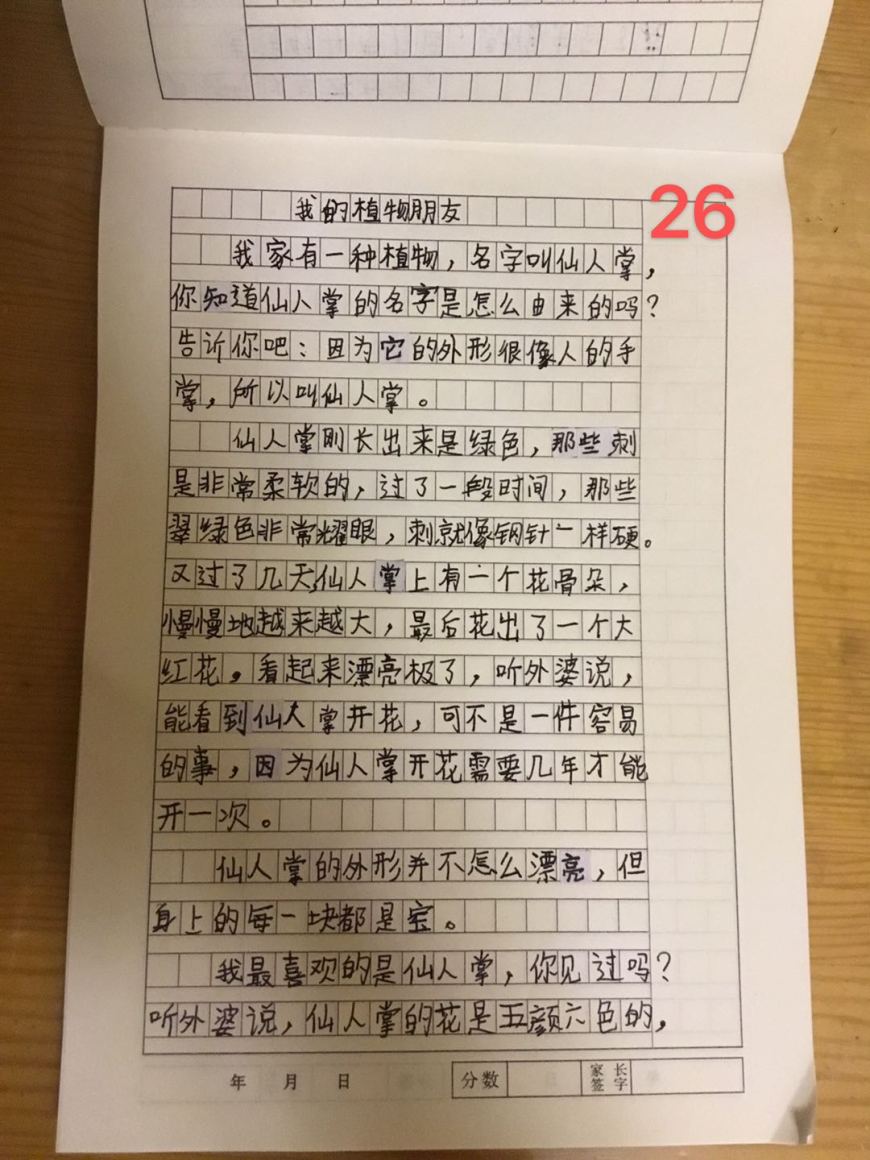 26
我的植物朋友
我家有一种植物，名字叫仙人掌，
你知道仙人掌的名字是怎么由来的吗？
告诉你吧：因为它的外形很像人的手
掌，所以叫仙人掌。
仙人掌刚长出来是绿色，那些刺
是非常柔软的，过了一段时间，那些
翠绿色非常耀眼，刺就像钢针一样硬。
又过了几天仙人掌上有一个花骨朵，
慢慢地越来越大，最后花出了一个大
红花。看起来漂亮极了，听外婆说，
能看到仙人掌开花，可不是一件容易
的事，因为仙人掌开花需要几年才能
开一次。
仙人掌的外形并不怎么漂亮，但
身上的每一块都是宝。
我最喜欢的是仙人掌，你见过吗？
听外婆说，仙人掌的花是五颜六色的，
年 月 日 分数 家长签字